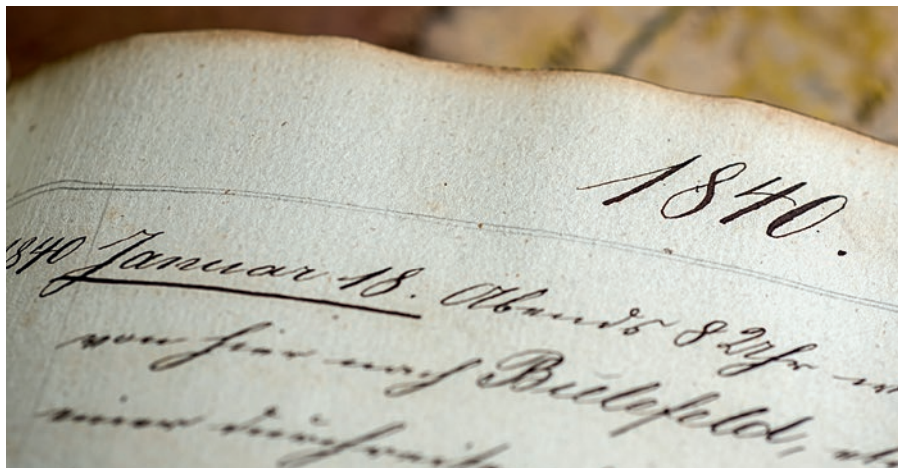 1840.
1840 Januar 18. Abends 8 Uhr
von hier nach Bielefeld,